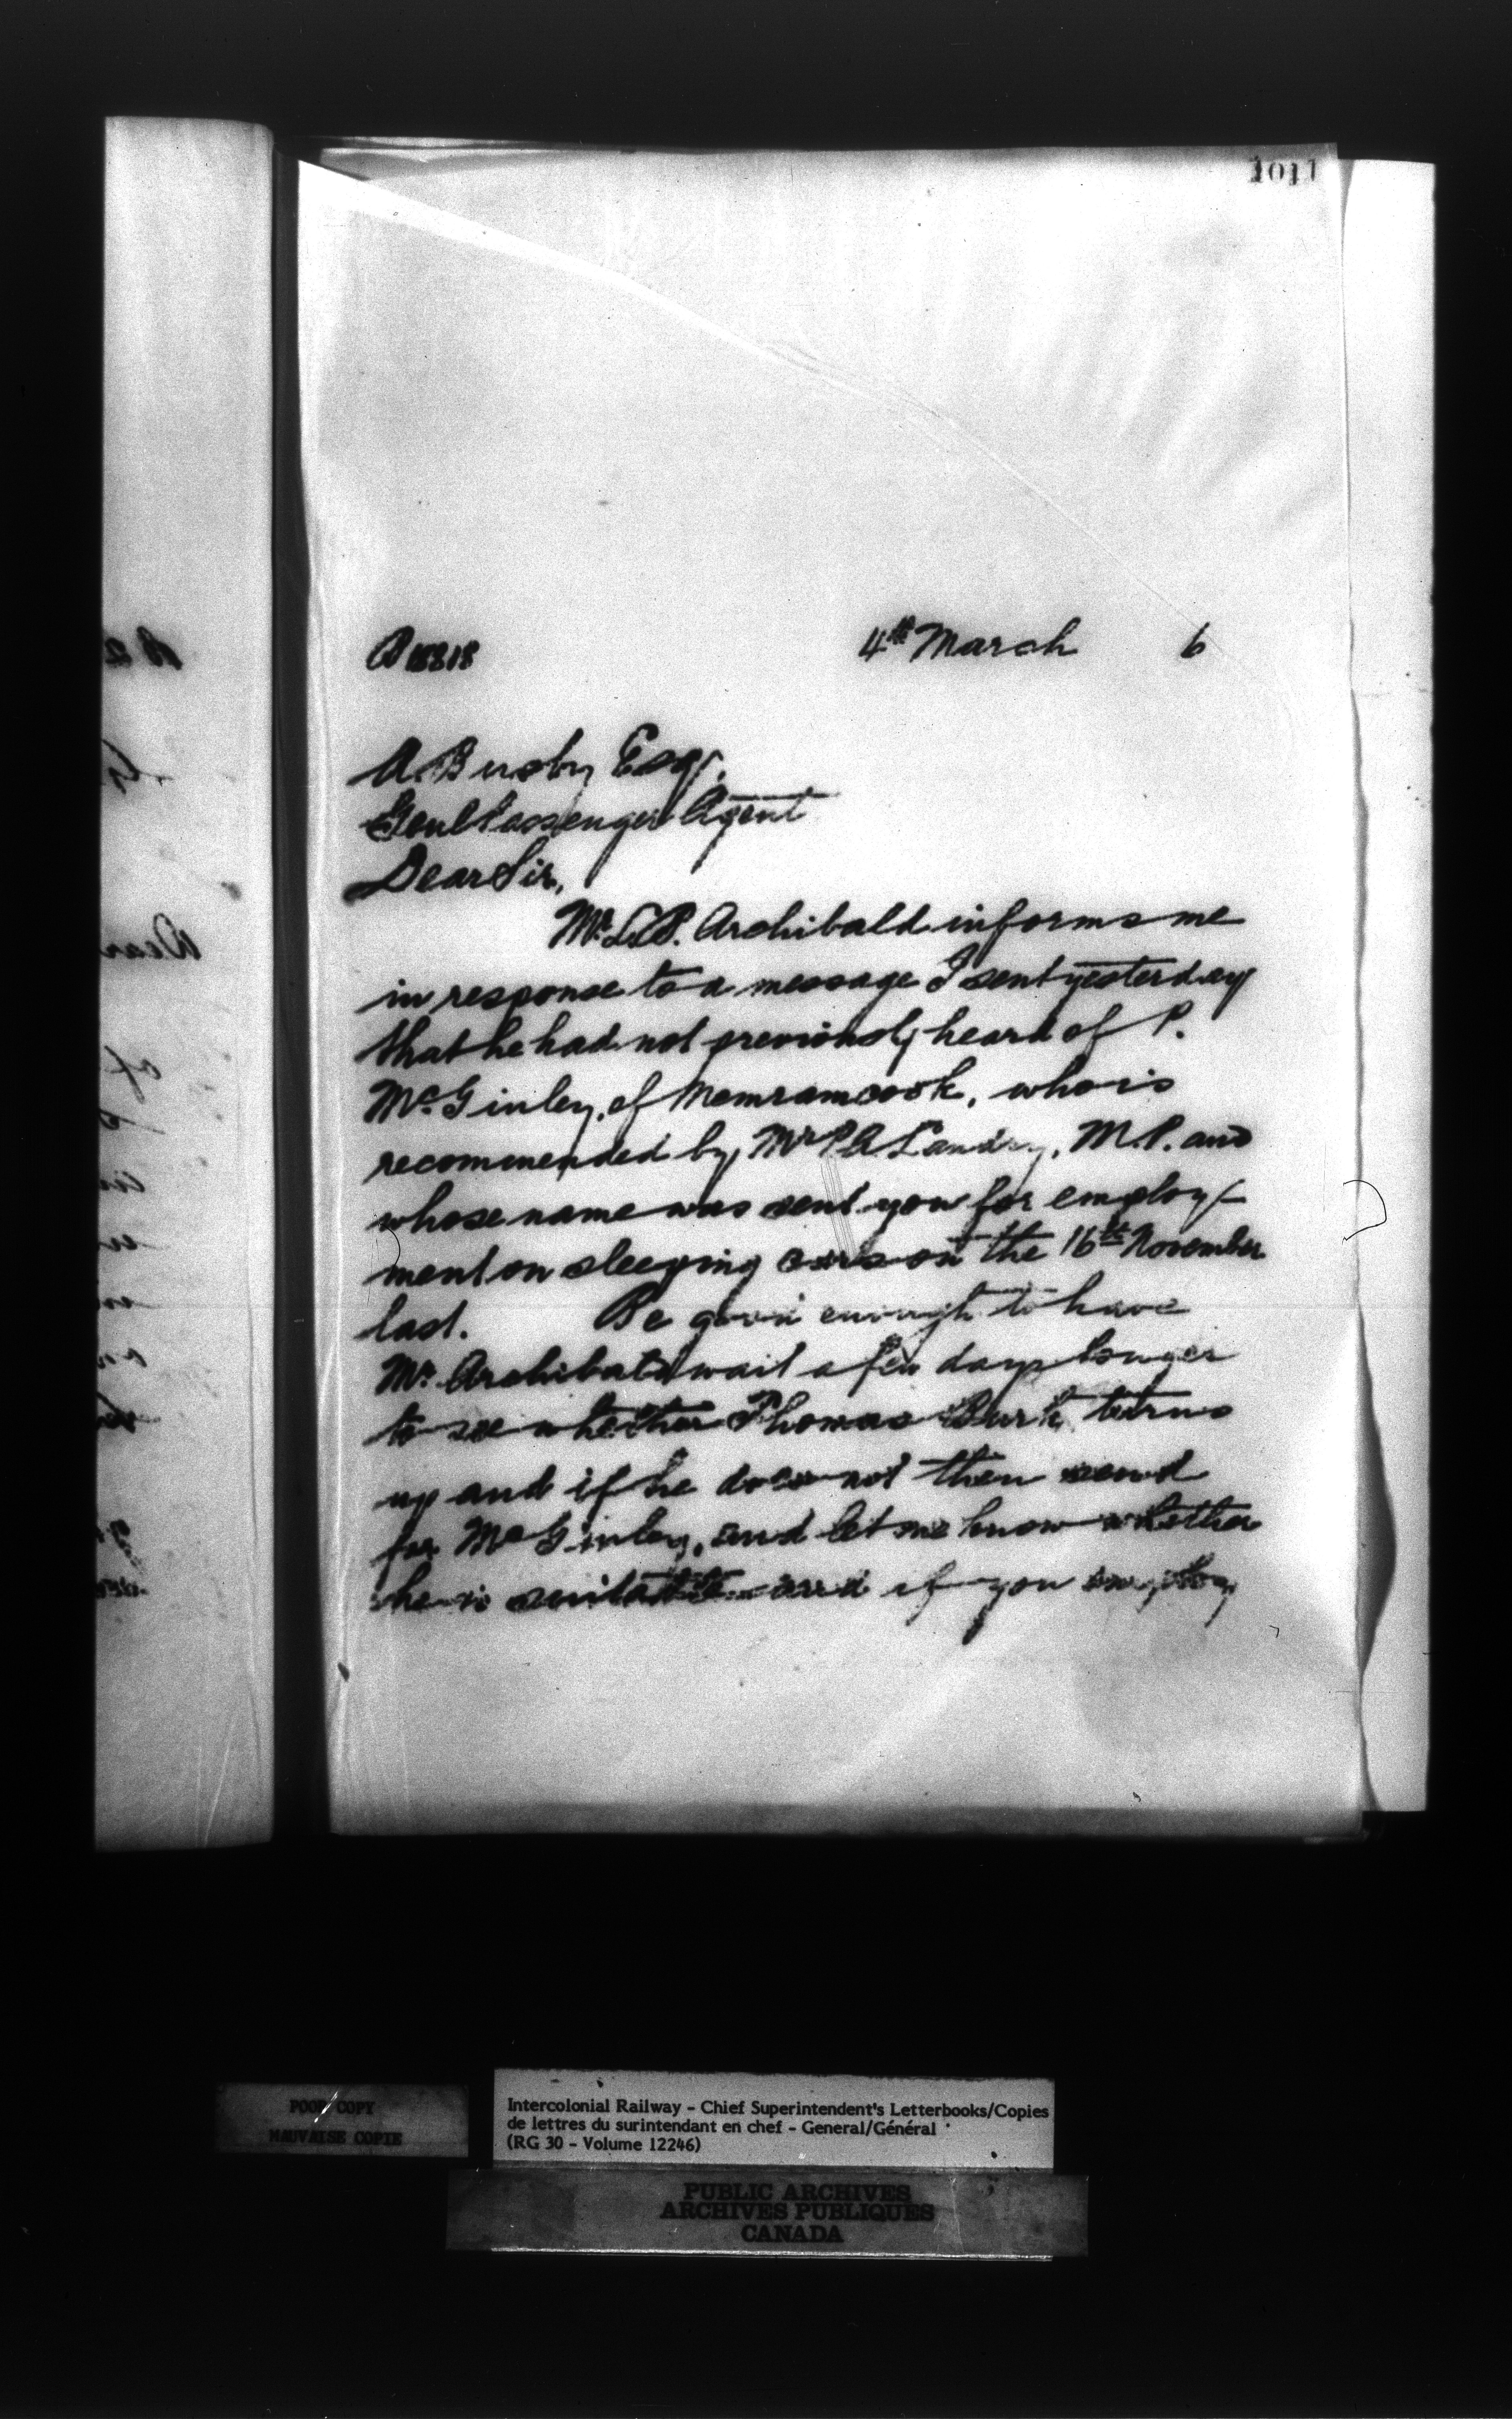 1011
4th March 6
A. Busby Esq.
Genl Passenger Agent
Dear Sir,
Mr. Archibald informs me
in response to a message I sent yesterday
that he had not previously heard of P.
McGinley, of Memramcook, who is
recommended by Mr P A Landry, M.P. and
whose name was sent you for employ-
ment on sleeping cars on the 16th November
last. Be good enough to have
Mr. Archibald wait a few days longer
to see whether Thomas Burk turns
up and if he does not then send
for McGinley, and let me know whether
he is suitable and if you employ
POOR COPY
MAUVAISE COPIE
Intercolonial Railway - Chief Superintendent's Letterbooks/Copies
de lettres du surintendant en chef - General/Général
(RG 30 - Volume 12246)
PUBLIC ARCHIVES
ARCHIVES PUBLIQUES
CANADA